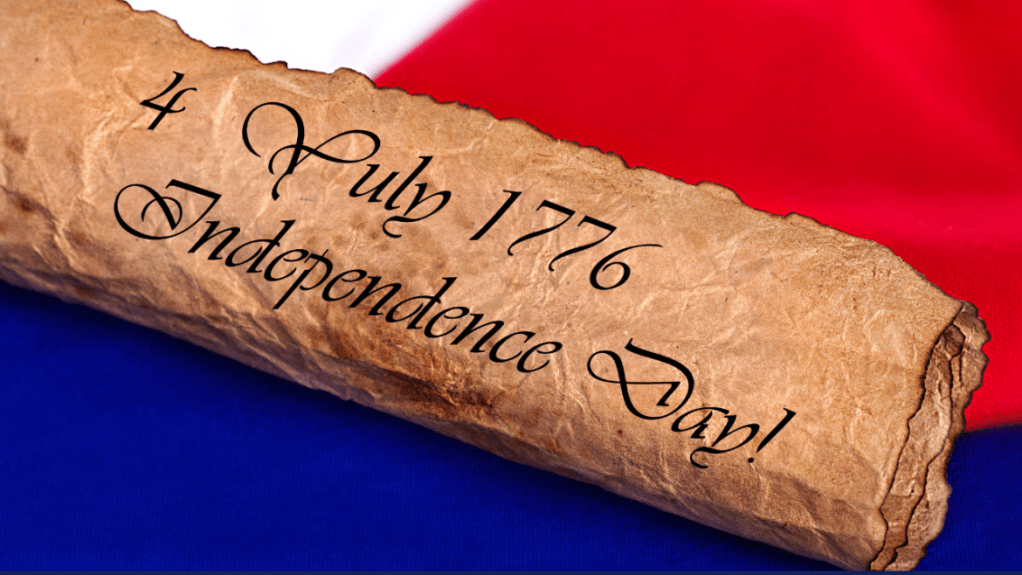 4 Yuly 1776
Independence Day!